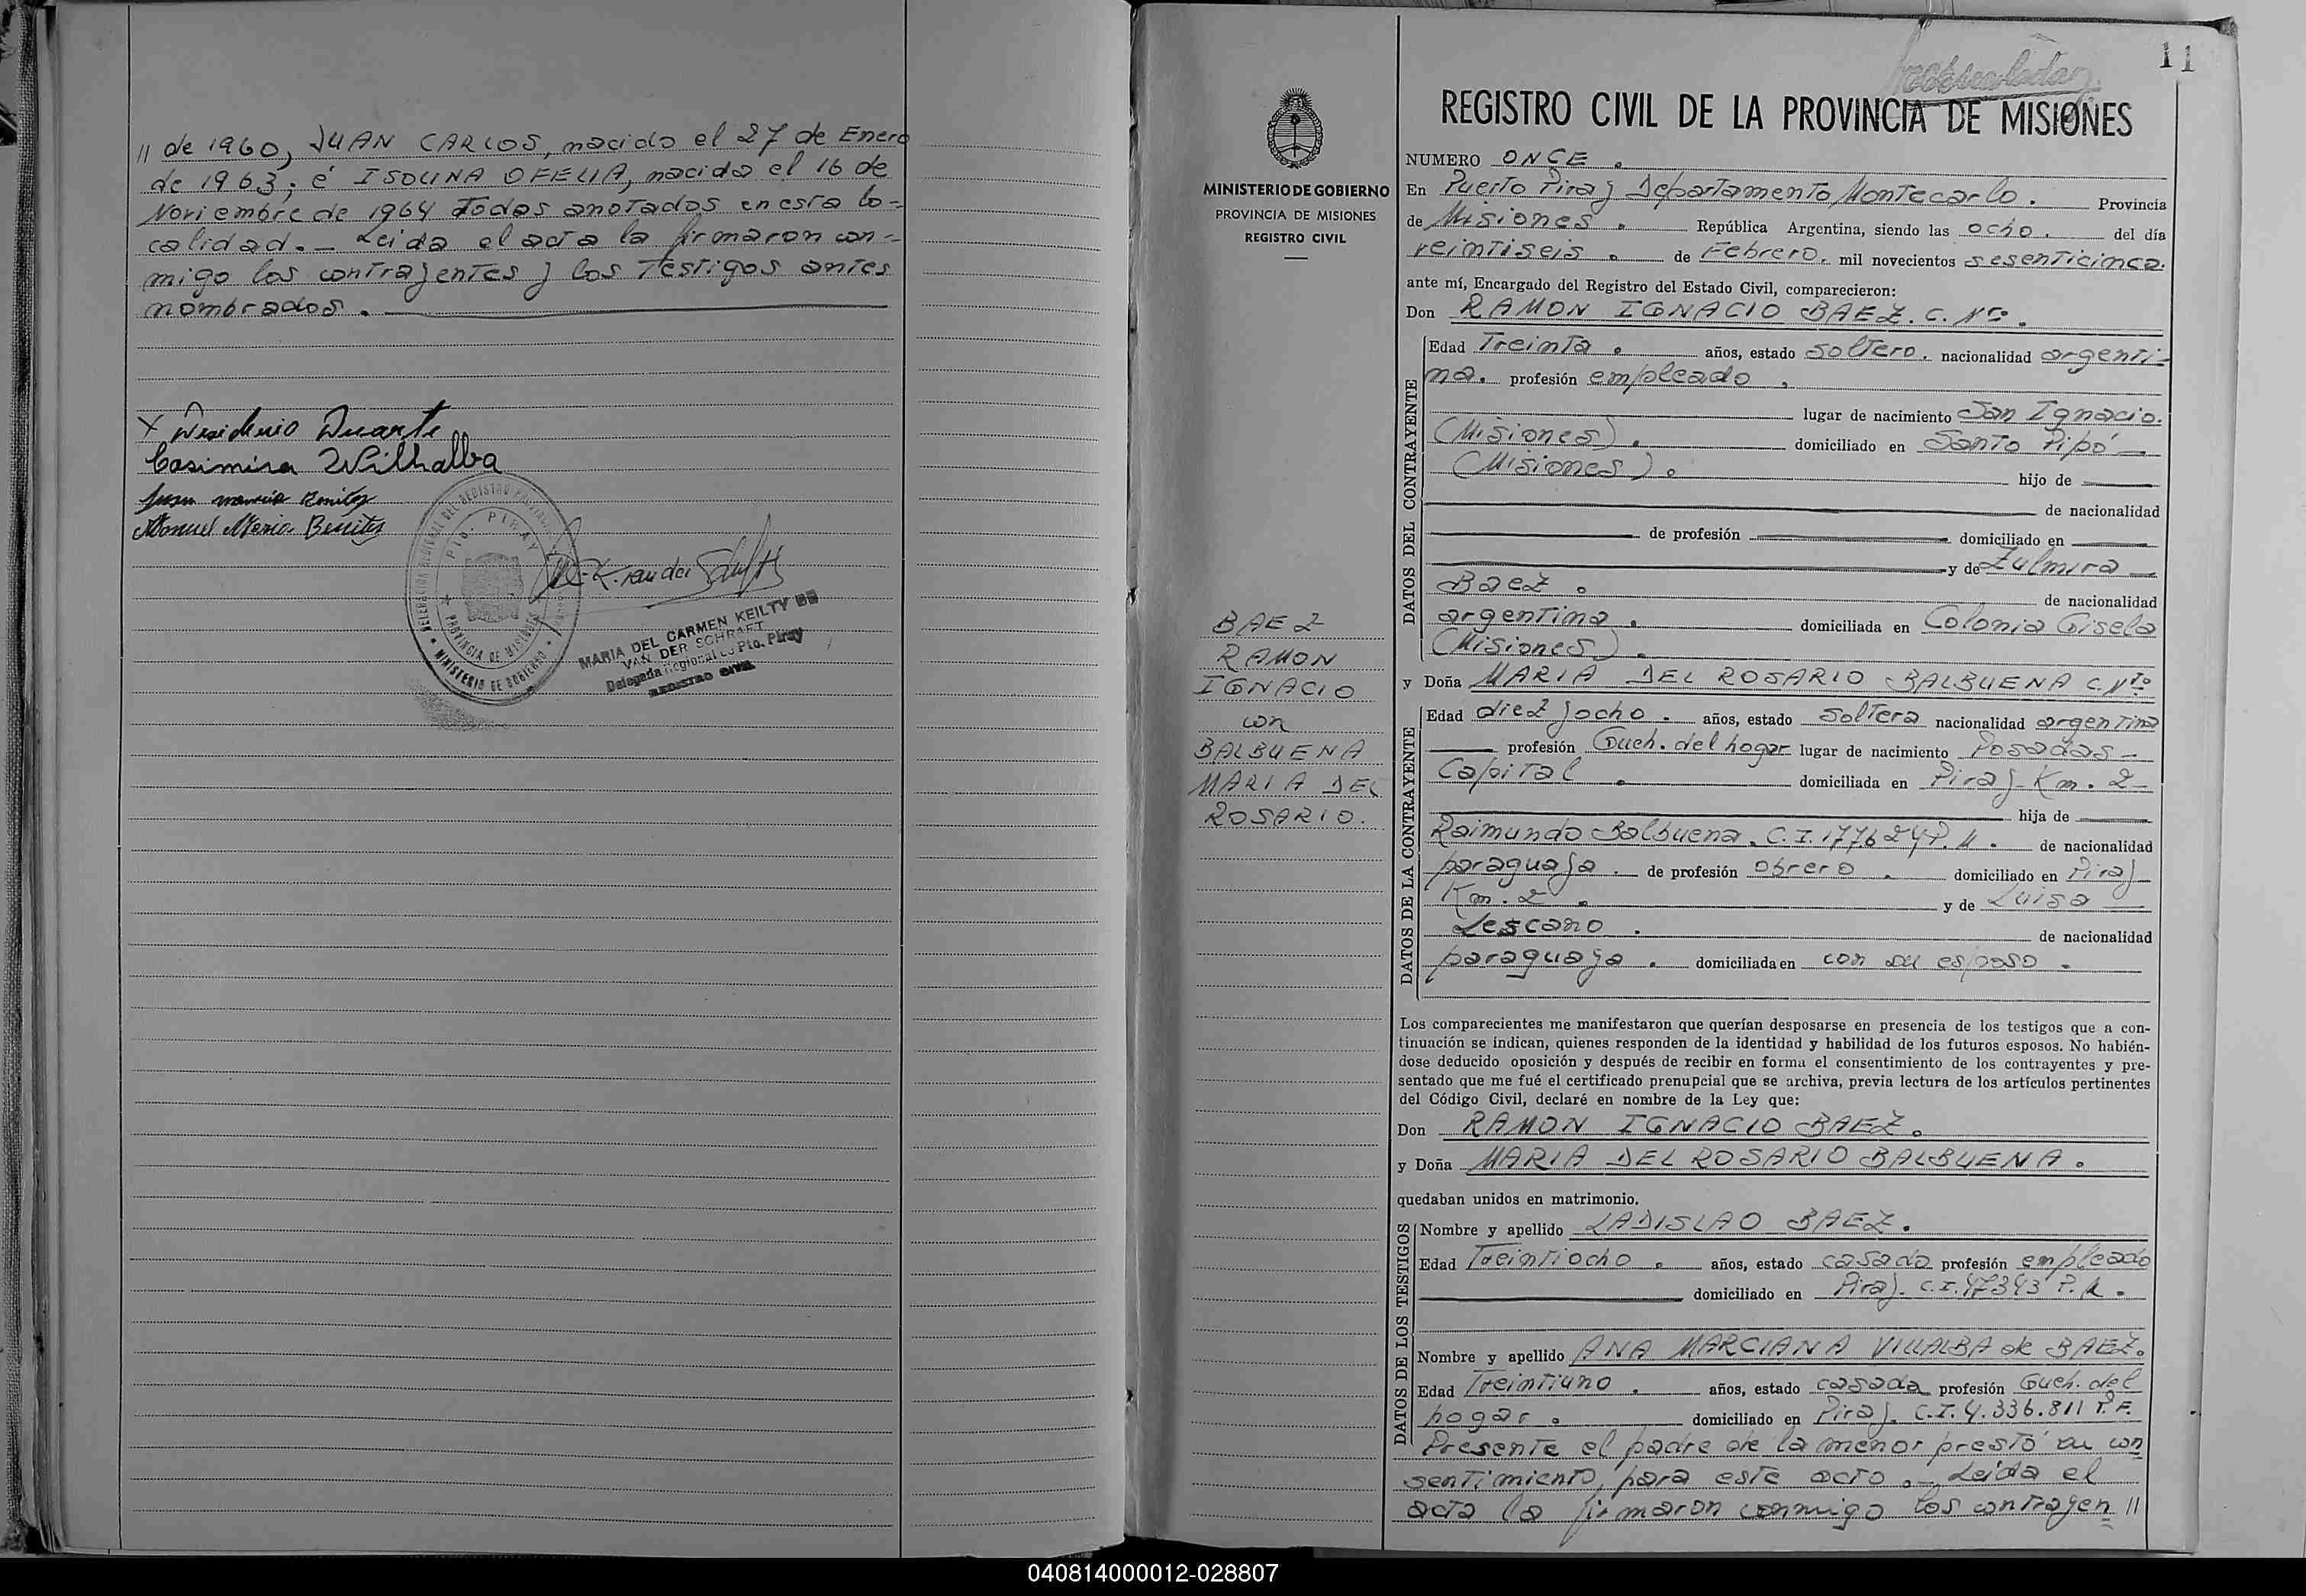 // de 1960, JUAN CARLOS, nacido el 27 de Enero
de 1963; é ISOLINA OFELIA, nacida el 16 de
Noviembre de 1964 Todos anotados en esta lo=
calidad.- Leida el acta la firmaron con=
migo los contrayentes y los Testigos antes
nombrados.
X Desiderio Duarte
Casimira Villhalba
Manuel Maria Benites
REGISTRO PROVINCIAL
PTO. PIRAY
PROVINCIA DE MISIONES
MINISTERIO DE GOBIERNO
MARIA DEL CARMEN KEILTY DE
VAN DER SCHRAFT
Delegada Regional de Pto. Piray
REGISTRO CIVIL
11
MINISTERIO DE GOBIERNO
PROVINCIA DE MISIONES
REGISTRO CIVIL
BAEZ
RAMON
IGNACIO
con
BALBUENA
MARIA DEL
ROSARIO.
REGISTRO CIVIL DE LA PROVINCIA DE MISIONES
NUMERO ONCE.
En Puerto Piray Departamento Montecarlo. Provincia
de Misiones. República Argentina, siendo las ocho. del día
veintiseis. de Febrero. mil novecientos sesenticinco.
ante mí, Encargado del Registro del Estado Civil, comparecieron:
Don RAMON IGNACIO BAEZ. C. Nto.
DATOS DEL CONTRAYENTE
Edad Treinta. años, estado Soltero. nacionalidad argenti-
na. profesión empleado.
lugar de nacimiento San Ignacio.
(Misiones). domiciliado en Santo Pipó
(Misiones). hijo de
de nacionalidad
de profesión domiciliado en
y de Zulmira
Baez. de nacionalidad
argentina. domiciliada en Colonia Gisela
(Misiones).
y Doña MARIA DEL ROSARIO BALBUENA C. Nto.
DATOS DE LA CONTRAYENTE
Edad diez y ocho. años, estado Soltera nacionalidad argentina
profesión Queh. del hogar lugar de nacimiento Posadas-
Capital. domiciliada en Piray Km. 2-
hija de
Raimundo Balbuena. C.I. 177624 P. M. de nacionalidad
paraguaya. de profesión obrero. domiciliado en Piray
Km. 2. y de Luisa
Lescano. de nacionalidad
paraguaya. domiciliada en con su esposo.
Los comparecientes me manifestaron que querían desposarse en presencia de los testigos que a con-
tinuación se indican, quienes responden de la identidad y habilidad de los futuros esposos. No habién-
dose deducido oposición y después de recibir en forma el consentimiento de los contrayentes y pre-
sentado que me fué el certificado prenupcial que se archiva, previa lectura de los artículos pertinentes
del Código Civil, declaré en nombre de la Ley que:
Don RAMON IGNACIO BAEZ.
y Doña MARIA DEL ROSARIO BALBUENA.
quedaban unidos en matrimonio.
DATOS DE LOS TESTIGOS
Nombre y apellido LADISLAO BAEZ.
Edad Treintiocho. años, estado casado profesión empleado
domiciliado en Piray. C.I. 47343 P. M.
Nombre y apellido ANA MARCIANA VILLALBA de BAEZ.
Edad Treintiuno. años, estado casada profesión Queh. del
hogar. domiciliado en Piray. C.I. 4.336.811 P.F.
Presente el padre de la menor prestó su con
sentimiento para este acto.- Leida el
acta la firmaron conmigo los contrayen //
040814000012-028807